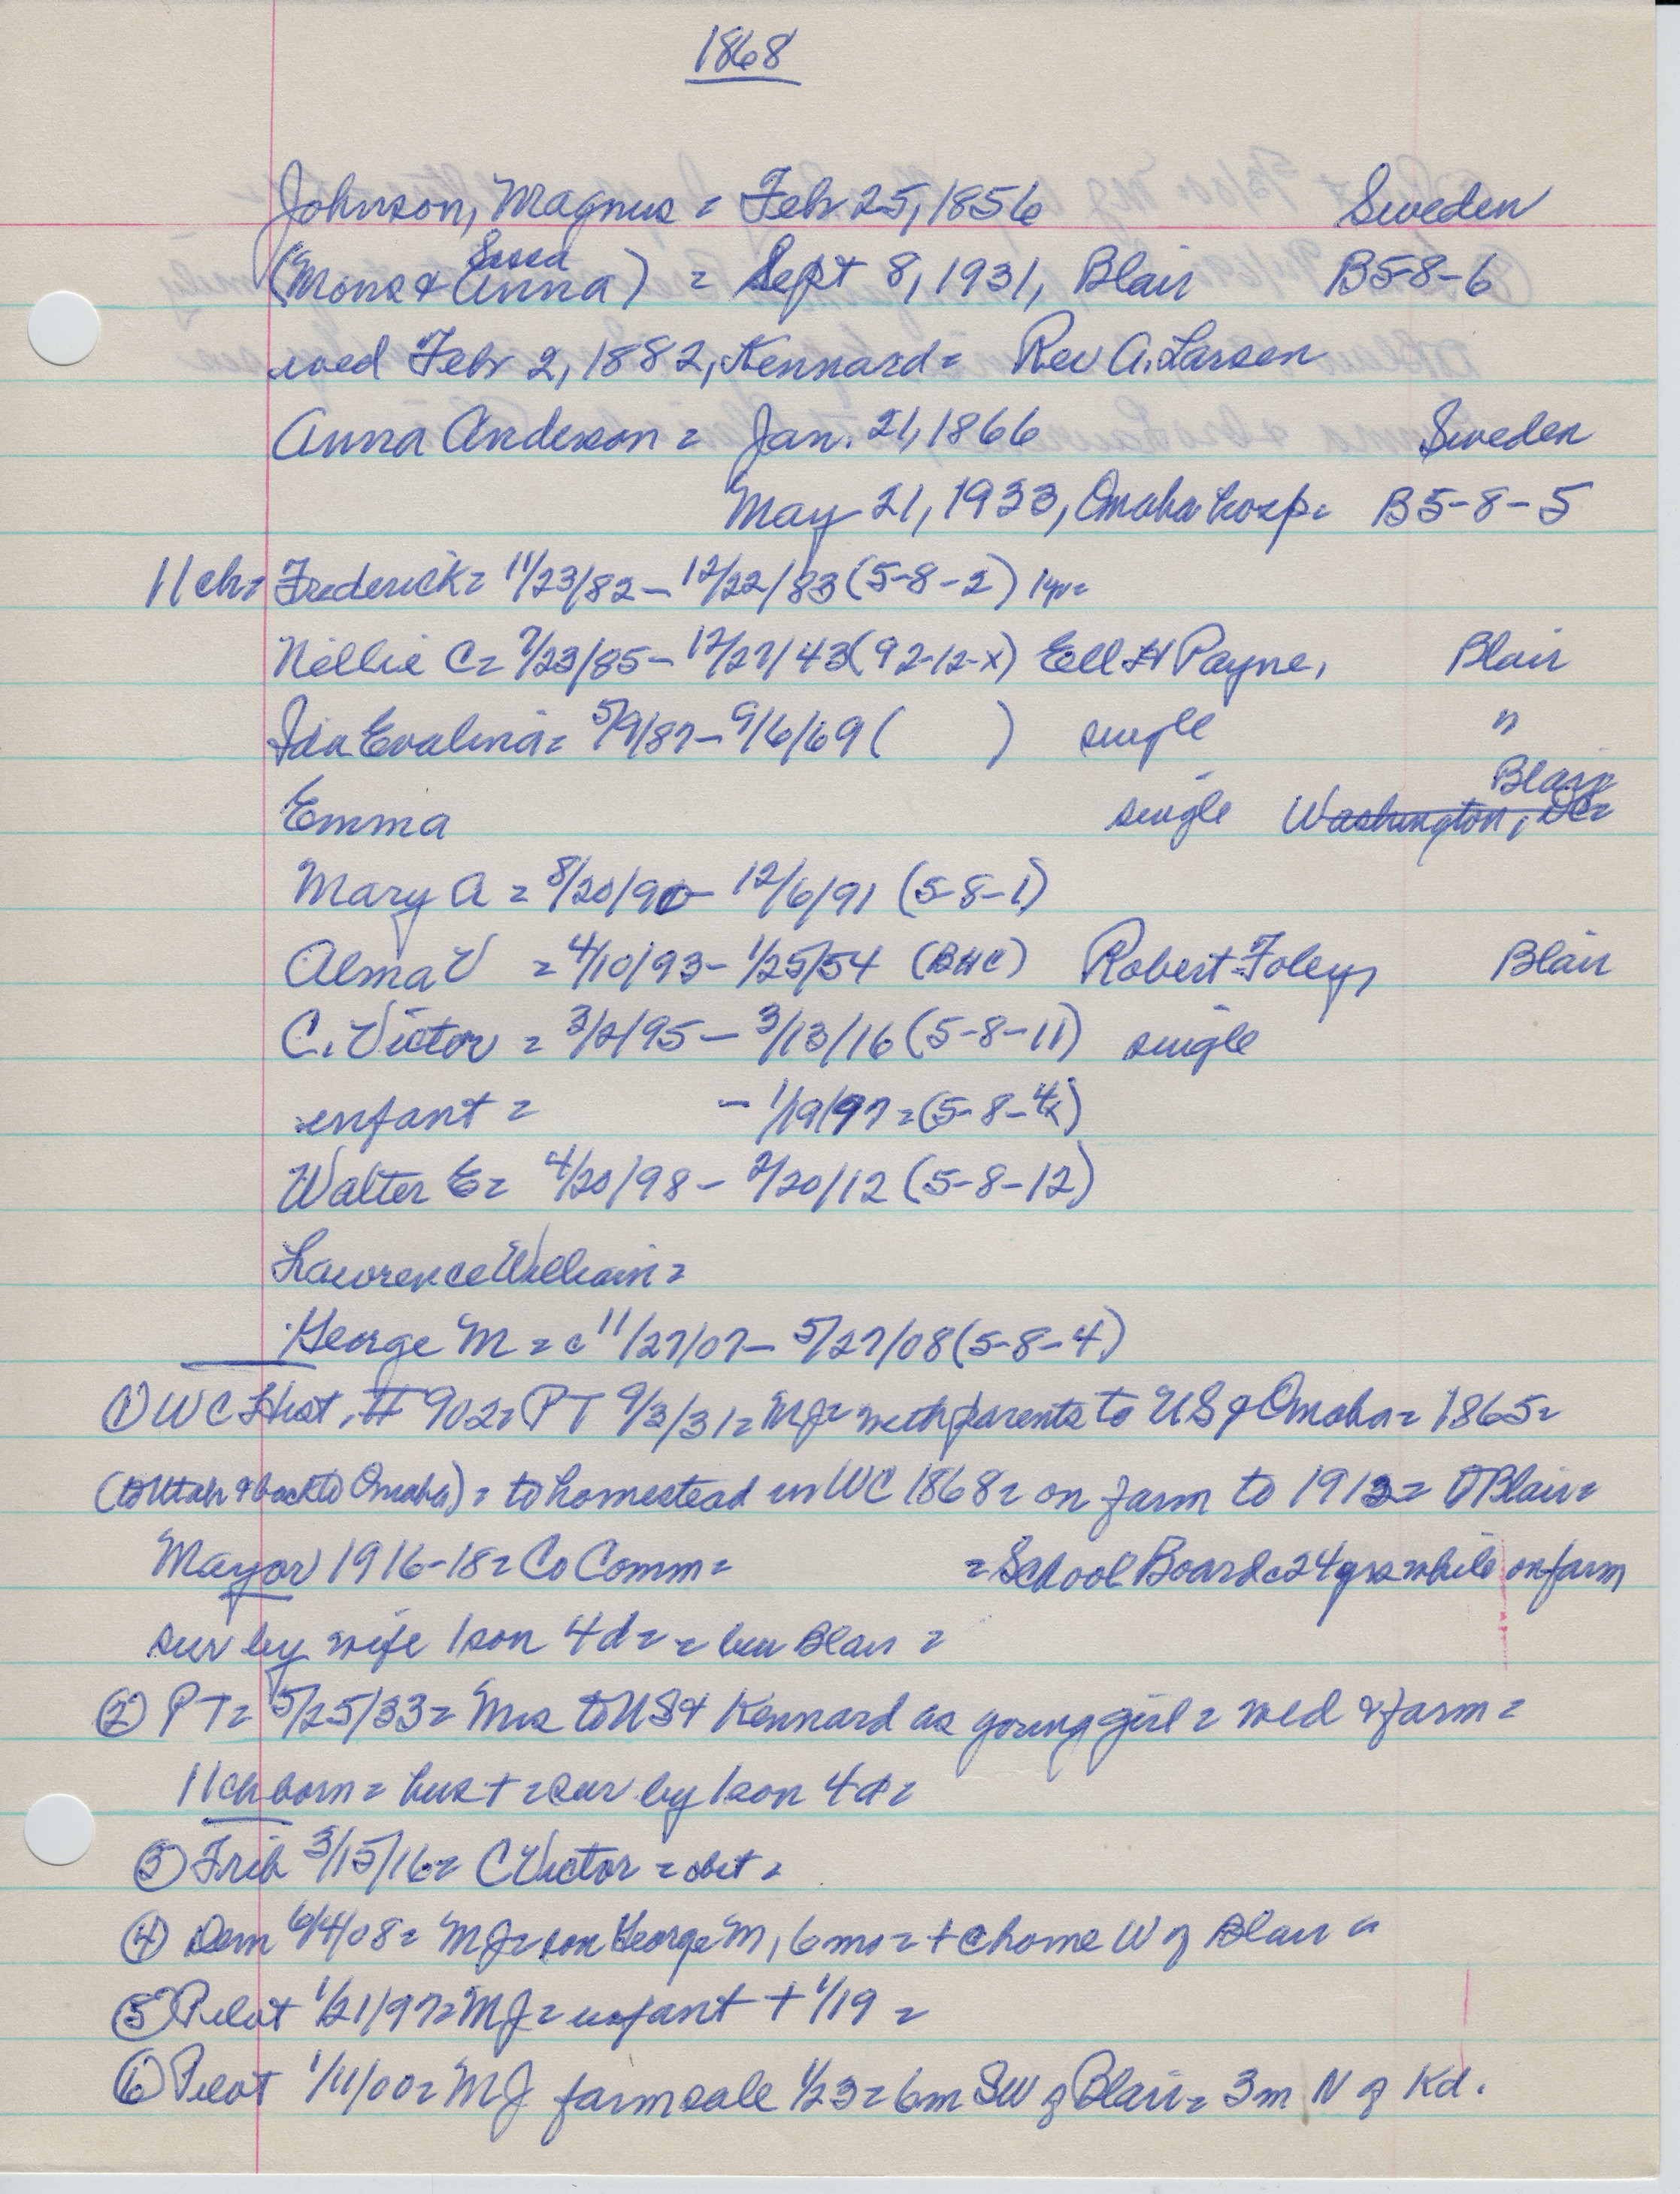 1868
Johnson, Magnus = Feb 25, 1856 Sweden
(Mons & Anna) = Sept 8, 1931, Blair B5-8-6
wed Feb 2, 1882, Kennard = Rev A. Larsen
Anna Anderson = Jan. 21, 1866 Sweden
May 21, 1933, Omaha hosp = B5-8-5
11 ch = Frederick = 11/23/82 - 12/22/83 (5-8-2) 1yr =
Nellie C = 7/23/85 - 12/27/43 (92-12-x) Ell H Payne, Blair
Ida Evalina = 5/9/87 - 9/6/69 ( ) single "
Blair
Emma single Washington, DC =
Mary A = 8/20/90 - 12/6/91 (5-8-1)
Alma V = 4/10/93 - 1/25/54 (BHC) Robert Foley, Blair
C. Victor = 3/2/95 - 3/13/16 (5-8-11) single
infant = - 1/19/97 = (5-8-4x)
Walter E = 4/20/98 - 2/20/12 (5-8-12)
Lawrence William =
George M = c 11/27/07 - 5/27/08 (5-8-4)
① WC Hist, # 902 = PT 9/3/31 = MJ = with parents to US & Omaha = 1865 =
(to Utah & back to Omaha) = to homestead in WC 1868 = on farm to 1913 = to Blair =
Mayor 1916-18 = Co Comm = = School Board = 24 yrs while on farm
sur by wife 1 son 4 d = = bu Blair =
② PT = 5/25/33 = Mrs to US & Kennard as young girl = wed & farm =
11 ch born = hus + = sur by 1 son 4 d =
③ Trib 3/15/16 = C Victor = obit =
④ Dem 6/4/08 = MJ = son George M, 6 mo = + @ home W of Blair =
⑤ Pilot 1/21/97 = MJ = infant + 1/19 =
⑥ Pilot 1/11/00 = MJ farm sale 1/23 = 6m SW of Blair = 3m N of Kd.